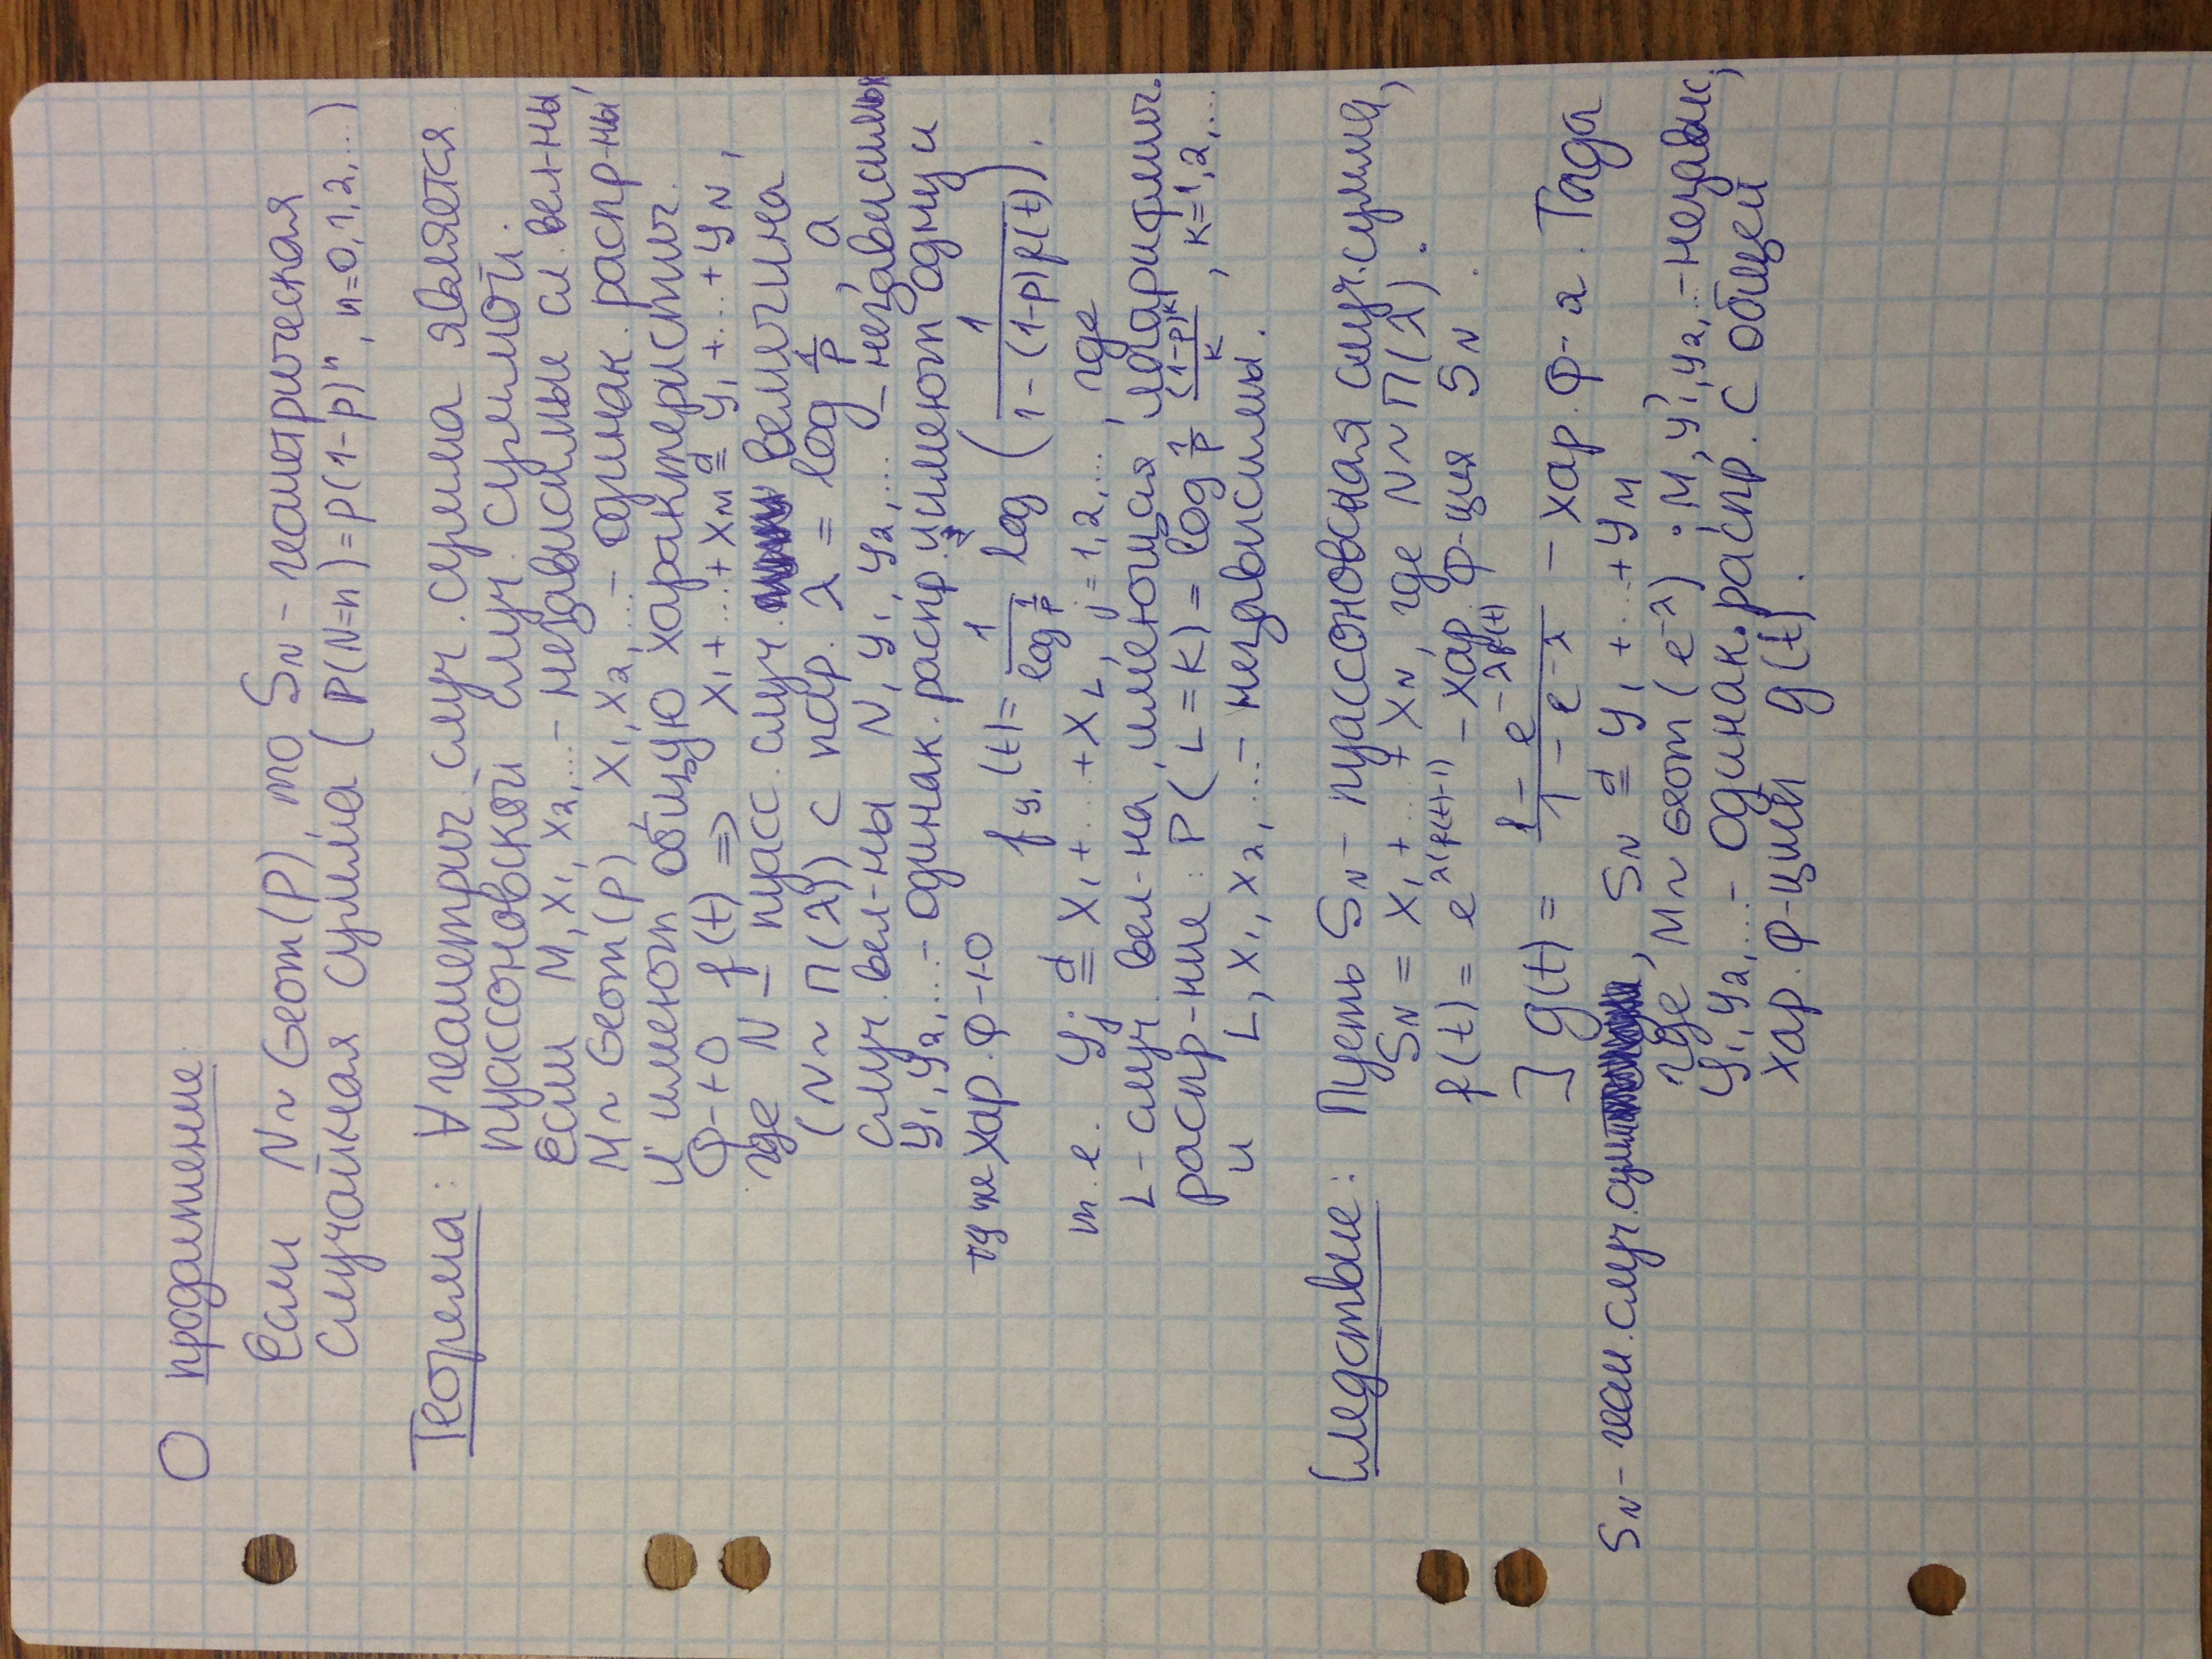 О продолжение:
Если N ~ Geom(p), то S_N - геометрическая
случайная сумма (P(N=n) = p(1-p)^n, n=0,1,2,...)
Теорема: ∀ геометрич. случ. сумма является
пуассоновской случ. суммой.
Если M, X_1, X_2,... - независимые сл. вел-ны,
M ~ Geom(p), X_1, X_2,... - одинак. распр-ны
и имеют общую характеристич.
ф-ю f(t) ⇒ X_1 + ... + X_M d= Y_1 + ... + Y_N,
где N - пуасс. случ. величина
(N ~ П(λ)) с пар. λ = log 1/p, а
случ. вел-ны N, Y_1, Y_2,... - независимых
Y_1, Y_2,... - одинак. распр. и имеют одну и
ту же хар. ф-ю f_{Y_1}(t) = 1/(log 1/p) log (1/(1-(1-p)f(t))),
т.е. Y_j d= X_1 + ... + X_L, j=1,2,..., где
L - случ. вел-на, имеющая логарифмич.
распр-ние: P(L=k) = log 1/p (1-p)^k/k, k=1,2,...
и L, X_1, X_2,... - независимы.
Следствие: Пусть S_N - пуассоновская случ. сумма,
S_N = X_1 + ... + X_N, где N ~ П(λ).
f(t) = e^{λ(f(t)-1)} - хар. ф-ция S_N.
] g(t) = (1 - e^{-λf(t)})/(1 - e^{-λ}) - хар. ф-я. Тогда
S_N - геом. случ. сумма, S_N d= Y_1 + ... + Y_M
где M ~ Geom(e^{-λ}). M, Y_1, Y_2,... - независ.,
Y_1, Y_2,... - одинак. распр. с общей
хар. ф-цией g(t).